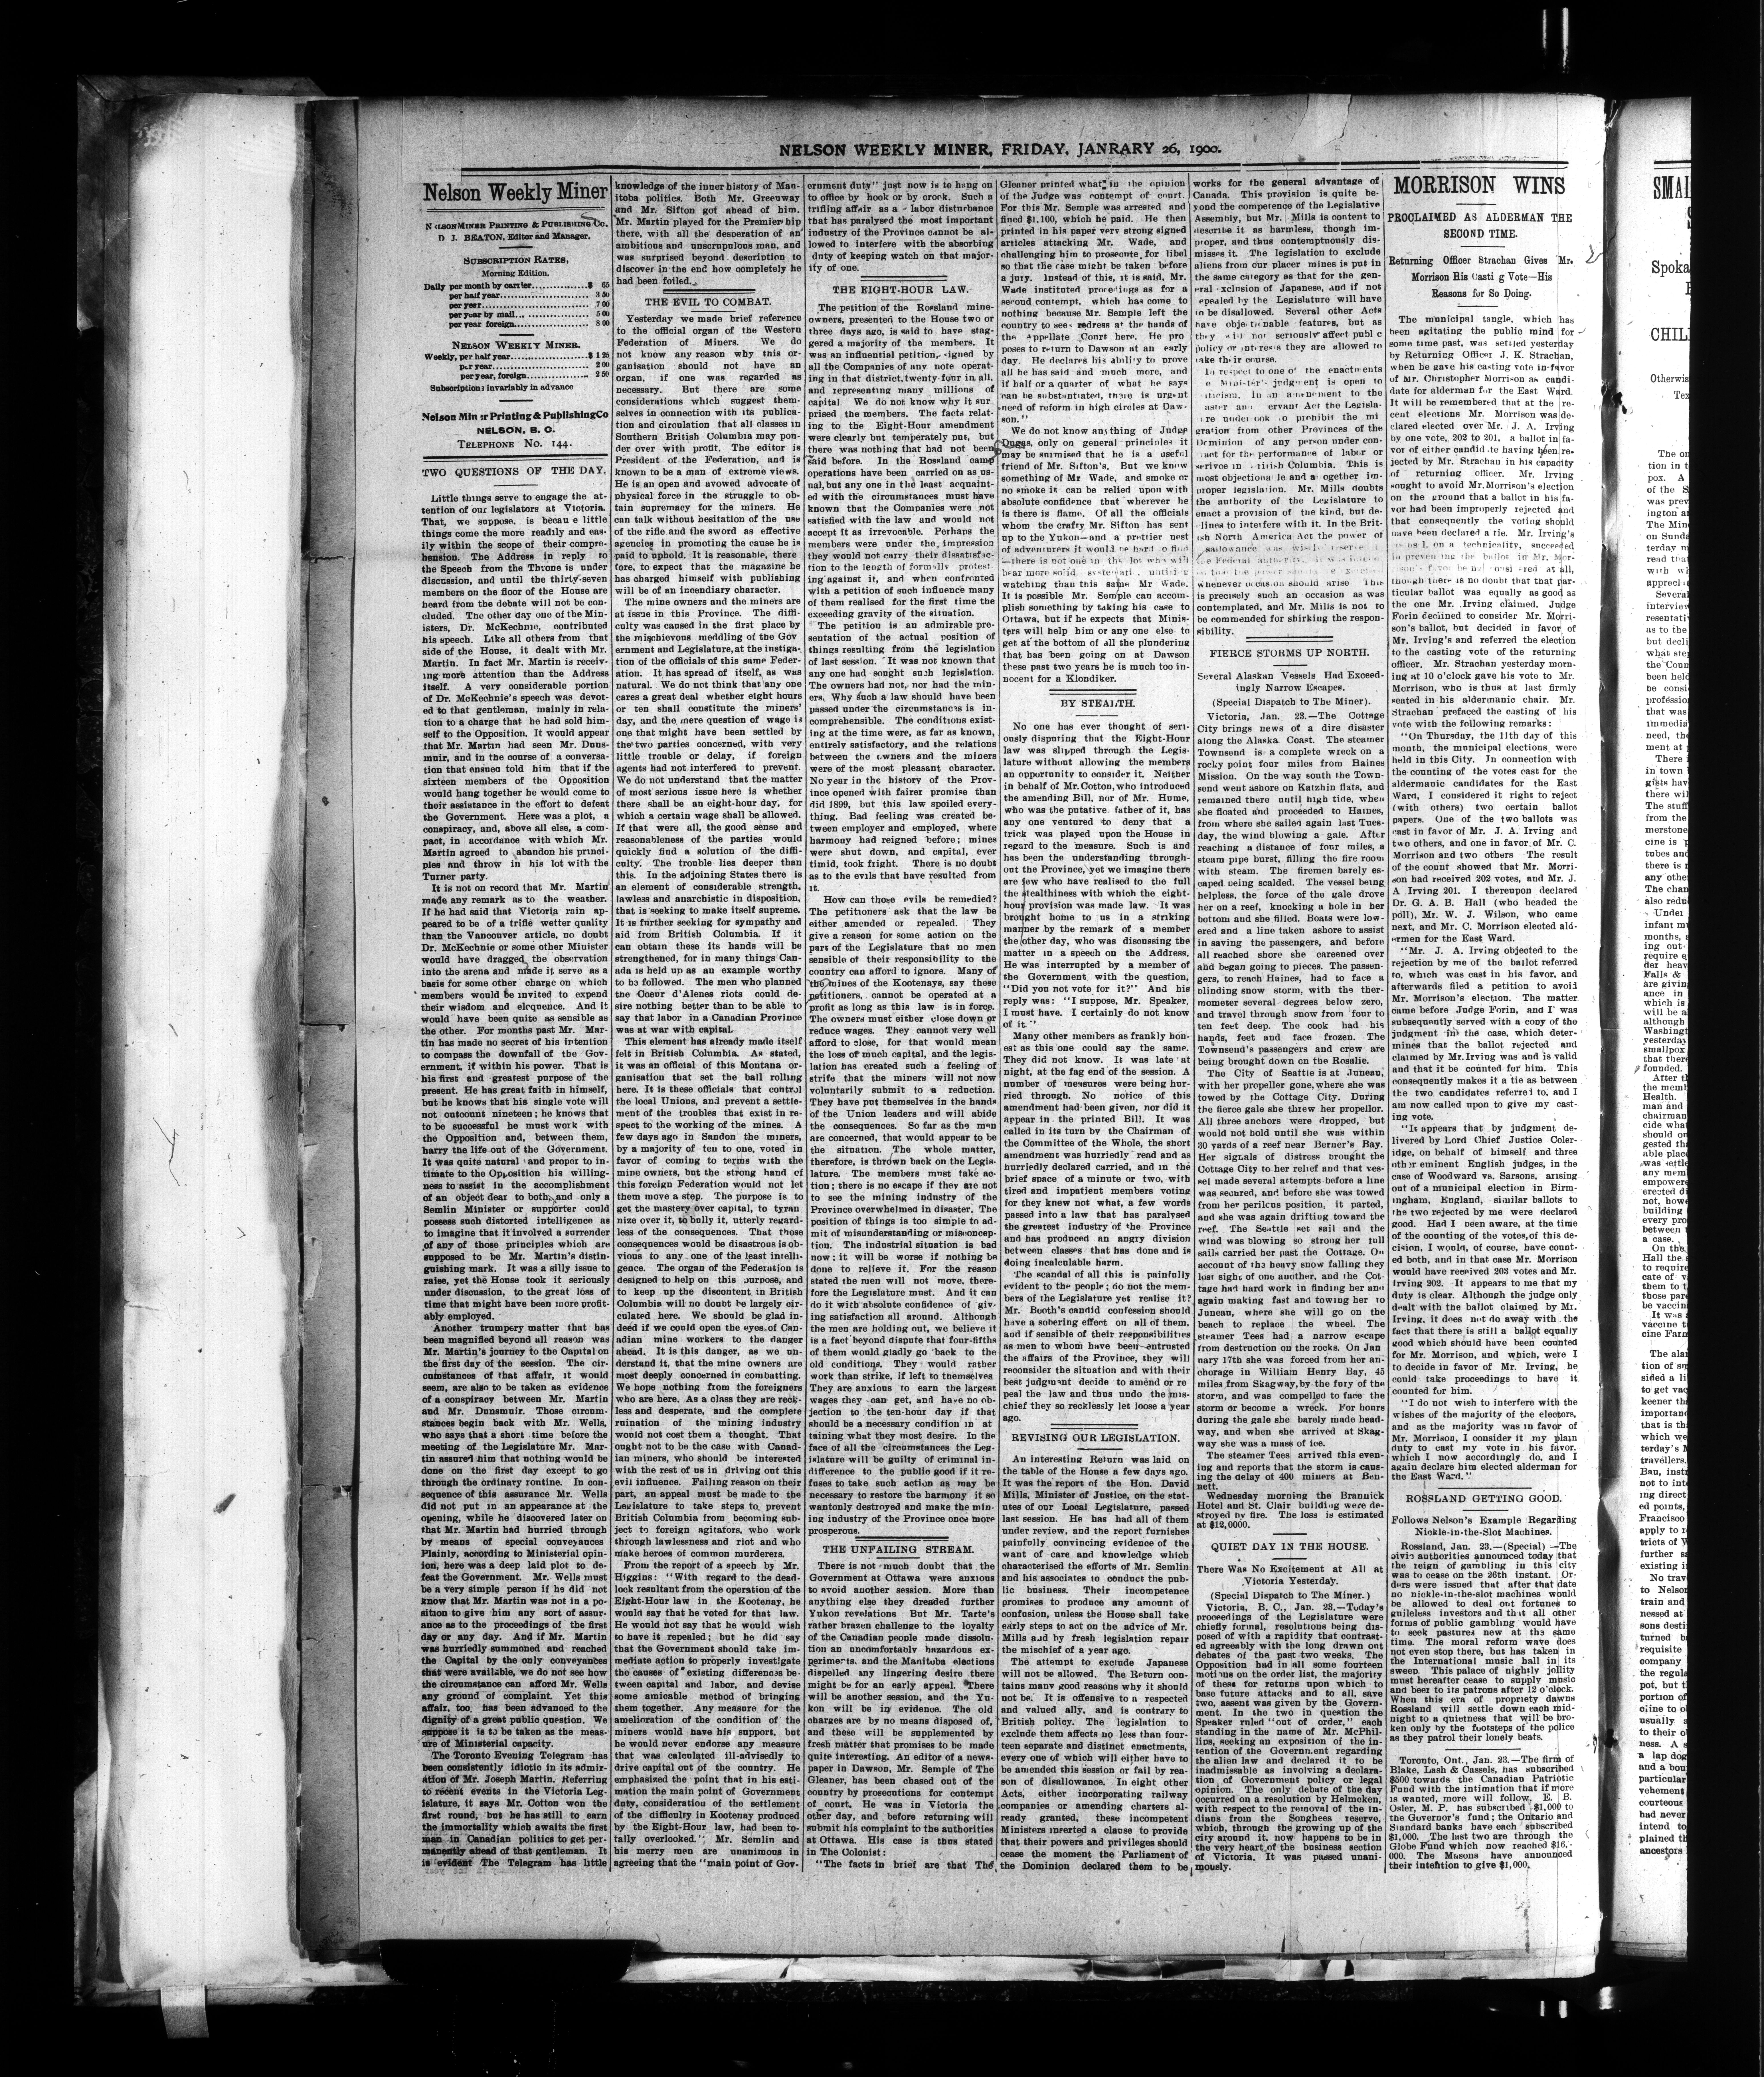 NELSON WEEKLY MINER, FRIDAY, JANRARY 26, 1900.
Nelson Weekly Miner
NELSON MINER PRINTING & PUBLISHING CO.
D J. BEATON, Editor and Manager.
SUBSCRIPTION RATES,
Morning Edition.
Daily per month by carter..............$ 65
per half year...................... 3 50
per year........................... 7 00
per year by mail... ............... 5 00
per year foreign................... 8 00
NELSON WEEKLY MINER.
Weekly, per half year...................$ 1 25
per year ................... 2 00
per year, foreign............... 2 50
Subscriptions invariably in advance
Nelson Miner Printing & Publishing Co
NELSON. B. C.
TELEPHONE No. 144.
TWO QUESTIONS OF THE DAY.
Little things serve to engage the at-
tention of our legislators at Victoria.
That, we suppose, is becau e little
things come the more readily and eas-
ily within the scope of their compre-
hension. The Address in reply to
the Speech from the Throne is under
discussion, and until the thirty-seven
members on the floor of the House are
heard from the debate will not be con-
cluded. The other day one of the Min-
isters, Dr. McKechnie, contributed
his speech. Like all others from that
side of the House, it dealt with Mr.
Martin. In fact Mr. Martin is receiv-
ing more attention than the Address
itself. A very considerable portion
of Dr. McKechnie's speech was devot-
ed to that gentleman, mainly in rela-
tion to a charge that he had sold him-
self to the Opposition. It would appear
that Mr. Martin had seen Mr. Duns-
muir, and in the course of a conversa-
tion that ensued told him that if the
sixteen members of the Opposition
would hang together he would come to
their assistance in the effort to defeat
the Government. Here was a plot, a
conspiracy, and, above all else, a com-
pact, in accordance with which Mr.
Martin agreed to abandon his princi-
ples and throw in his lot with the
Turner party.
It is not on record that Mr. Martin
made any remark as to the weather.
If he had said that Victoria rain ap-
peared to be of a trifle wetter quality
than the Vancouver article, no doubt
Dr. McKechnie or some other Minister
would have dragged the observation
into the arena and made it serve as a
basis for some other charge on which
members would be invited to expend
their wisdom and elqouence. And it
would have been quite as sensible as
the other. For months past Mr. Mar-
tin has made no secret of his intention
to compass the downfall of the Gov-
ernment, if within his power. That is
his first and greatest purpose of the
present. He has great faith in himself,
but he knows that his single vote will
not outcount nineteen; he knows that
to be successful he must work with
the Opposition and, between them,
harry the life out of the Government.
It was quite natural and proper to in-
timate to the Opposition his willing-
ness to assist in the accomplishment
of an object dear to both, and only a
Semlin Minister or supporter could
possess such distorted intelligence as
to imagine that it involved a surrender
of any of those principles which are
supposed to be Mr. Martin's distin-
guishing mark. It was a silly issue to
raise, yet the House took it seriously
under discussion, to the great loss of
time that might have been more profit-
ably employed.
Another trumpery matter that has
been magnified beyond all reason was
Mr. Martin's journey to the Capital on
the first day of the session. The cir-
cumstances of that affair, it would
seem, are also to be taken as evidence
of a conspiracy between Mr. Martin
and Mr. Dunsmuir. Those circum-
stances begin back with Mr. Wells,
who says that a short time before the
meeting of the Legislature Mr. Mar-
tin assured him that nothing would be
done on the first day except to go
through the ordinary routine. In con-
sequence of this assurance Mr. Wells
did not put in an appearance at the
opening, while he discovered later on
that Mr. Martin had hurried through
by means of special conveyances
Plainly, according to Ministerial opin-
ion, here was a deep laid plot to de-
feat the Government. Mr. Wells must
be a very simple person if he did not
know that Mr. Martin was not in a po-
sition to give him any sort of assur-
ance as to the proceedings of the first
day or any day. And if Mr. Martin
was hurriedly summoned and reached
the Capital by the only conveyances
that were available, we do not see how
the circumstance can afford Mr. Wells
any ground of complaint. Yet this
affair, too, has been advanced to the
dignity of a great public question. We
suppose it is to be taken as the meas-
ure of Ministerial capacity.
The Toronto Evening Telegram has
been consistently idiotic in its admir-
ation of Mr. Joseph Martin. Referring
to recent events in the Victoria Leg-
islature, it says Mr. Cotton won the
first round, but he has still to earn
the immortality which awaits the first
man in Canadian politics to get per-
manently ahead of that gentleman. It
is evident The Telegram has little
knowledge of the inner history of Man-
itoba politics. Both Mr. Greenway
and Mr. Sifton got ahead of him.
Mr. Martin played for the Premier hip
there, with all the desperation of an
ambitious and unscrupulous man, and
was surprised beyond description to
discover in the end how completely he
had been foiled.
THE EVIL TO COMBAT.
Yesterday we made brief reference
to the official organ of the Western
Federation of Miners. We do
not know any reason why this or-
ganisation should not have an
organ, if one was regarded as
necessary. But there are some
considerations which suggest them-
selves in connection with its publica-
tion and circulation that all classes in
Southern British Columbia may pon-
der over with profit. The editor is
President of the Federation, and is
known to be a man of extreme views.
He is an open and avowed advocate of
physical force in the struggle to ob-
tain supremacy for the miners. He
can talk without hesitation of the use
of the rifle and the sword as effective
agencies in promoting the cause he is
paid to uphold. It is reasonable, there
fore, to expect that the magazine he
has charged himself with publishing
will be of an incendiary character.
The mine owners and the miners are
at issue in this Province. The diffi-
culty was caused in the first place by
the mischievous meddling of the Gov
ernment and Legislature, at the instiga-
tion of the officials of this same Feder-
ation. It has spread of itself, as was
natural. We do not think that any one
cares a great deal whether eight hours
or ten shall constitute the miners'
day, and the mere question of wage is
one that might have been settled by
the two parties concerned, with very
little trouble or delay, if foreign
agents had not interfered to prevent.
We do not understand that the matter
of most serious issue here is whether
there shall be an eight-hour day, for
which a certain wage shall be allowed.
If that were all, the good sense and
reasonableness of the parties would
quickly find a solution of the diffi-
culty. The trouble lies deeper than
this. In the adjoining States there is
an element of considerable strength,
lawless and anarchistic in disposition,
that is seeking to make itself supreme.
It is further seeking for sympathy and
aid from British Columbia. If it
can obtain these its hands will be
strengthened, for in many things Can-
ada is held up as an example worthy
to be followed. The men who planned
the Coeur d'Alenes riots could de-
sire nothing better than to be able to
say that labor in a Canadian Province
was at war with capital.
This element has already made itself
felt in British Columbia. As stated,
it was an official of this Montana or-
ganisation that set the ball rolling
here. It is these officials that control
the local Unions, and prevent a settle-
ment of the troubles that exist in re-
spect to the working of the mines. A
few days ago in Sandon the miners,
by a majority of ten to one, voted in
favor of coming to terms with the
mine owners, but the strong hand of
this foreign Federation would not let
them move a step. The purpose is to
get the mastery over capital, to tyran
nize over it, to bully it, utterly regard-
less of the consequences. That those
consequences would be disastrous is ob-
vious to any one of the least intelli-
gence. The organ of the Federation is
designed to help on this purpose, and
to keep up the discontent in British
Columbia will no doubt be largely cir-
culated here. We should be glad in-
deed if we could open the eyes of Can-
adian mine workers to the danger
ahead. It is this danger, as we un-
derstand it, that the mine owners are
most deeply concerned in combatting.
We hope nothing from the foreigners
who are here. As a class they are reck-
less and desperate, and the complete
ruination of the mining industry
would not cost them a thought. That
ought not to be the case with Canad-
ian miners, who should be interested
with the rest of us in driving out this
evil influence. Failing reason on their
part, an appeal must be made to the
Legislature to take steps to prevent
British Columbia from becoming sub-
ject to foreign agitators, who work
through lawlessness and riot and who
make heroes of common murderers.
From the report of a speech by Mr.
Higgins: "With regard to the dead-
lock resultant from the operation of the
Eight-Hour law in the Kootenay, he
would say that he voted for that law.
He would not say that he would wish
to have it repealed; but he did say
that the Government should take im-
mediate action to properly investigate
the causes of existing differences be-
tween capital and labor, and devise
some amicable method of bringing
them together. Any measure for the
amelioration of the condition of the
miners would have his support, but
he would never endorse any measure
that was calculated ill-advisedly to
drive capital out of the country. He
emphasized the point that in his esti-
mation the main point of Government
duty, consideration of the settlement
of the difficulty in Kootenay produced
by the Eight-Hour law, had been to-
tally overlooked." Mr. Semlin and
his merry men are unanimous in
agreeing that the "main point of Gov-
ernment duty" just now is to hang on
to office by hook or by crook. Such a
trifling affair as a labor disturbance
that has paralysed the most important
industry of the Province cannot be al-
lowed to interfere with the absorbing
duty of keeping watch on that major-
ity of one.
THE EIGHT-HOUR LAW.
The petition of the Rossland mine-
owners, presented to the House two or
three days ago, is said to have stag-
gered a majority of the members. It
was an influential petition, signed by
all the Companies of any note operat-
ing in that district, twenty-four in all,
and representing many millions of
capital We do not know why it sur
prised the members. The facts relat-
ing to the Eight-Hour amendment
were clearly but temperately put, but
there was nothing that had not been
said before. In the Rossland camp
operations have been carried on as us-
ual, but any one in the least acquaint-
ed with the circumstances must have
known that the Companies were not
satisfied with the law and would not
accept it as irrevocable. Perhaps the
members were under the impression
they would not carry their dissatisfac-
tion to the length of formally protest-
ing against it, and when confronted
with a petition of such influence many
of them realised for the first time the
exceeding gravity of the situation.
The petition is an admirable pre-
sentation of the actual position of
things resulting from the legislation
of last session. It was not known that
any one had sought such legislation.
The owners had not, nor had the min-
ers. Why such a law should have been
passed under the circumstances is in-
comprehensible. The conditions exist-
ing at the time were, as far as known,
entirely satisfactory, and the relations
between the owners and the miners
were of the most pleasant character.
No year in the history of the Prov-
ince opened with fairer promise than
did 1899, but this law spoiled every-
thing. Bad feeling was created be-
tween employer and employed, where
harmony had reigned before; mines
were shut down, and capital, ever
timid, took fright. There is no doubt
as to the evils that have resulted from
it.
How can those evils be remedied?
The petitioners ask that the law be
either amended or repealed. They
give a reason for some action on the
part of the Legislature that no men
sensible of their responsibility to the
country can afford to ignore. Many of
the mines of the Kootenays, say these
petitioners, cannot be operated at a
profit as long as this law is in force.
The owners must either close down or
reduce wages. They cannot very well
afford to close, for that would mean
the loss of much capital, and the legis-
lation has created such a feeling of
strife that the miners will not now
voluntarily submit to a reduction.
They have put themselves in the hands
of the Union leaders and will abide
the consequences. So far as the men
are concerned, that would appear to be
the situation. The whole matter,
therefore, is thrown back on the Legis-
lature. The members must take ac-
tion; there is no escape if they are not
to see the mining industry of the
Province overwhelmed in disaster. The
position of things is too simple to ad-
mit of misunderstanding or misconcep-
tion. The industrial situation is bad
now; it will be worse if nothing be
done to relieve it. For the reason
stated the men will not move, there-
fore the Legislature must. And it can
do it with absolute confidence of giv-
ing satisfaction all around. Although
the men are holding out, we believe it
is a fact beyond dispute that four-fifths
of them would gladly go back to the
old conditions. They would rather
work than strike, if left to themselves
They are anxious to earn the largest
wages they can get, and have no ob-
jection to the ten-hour day if that
should be a necessary condition in at
taining what they most desire. In the
face of all the circumstances the Leg-
islature will be guilty of criminal in-
difference to the public good if it re-
fuses to take such action as may be
necessary to restore the harmony it so
wantonly destroyed and make the min-
ing industry of the Province once more
prosperous.
THE UNFAILING STREAM.
There is not much doubt that the
Government at Ottawa were anxious
to avoid another session. More than
anything else they dreaded further
Yukon revelations But Mr. Tarte's
rather brazen challenge to the loyalty
of the Canadian people made dissolu-
tion an uncomfortably hazardous ex-
periment, and the Manitoba elections
dispelled any lingering desire there
might be for an early appeal. There
will be another session, and the Yu-
kon will be in evidence. The old
charges are by no means disposed of,
and these will be supplemented by
fresh matter that promises to be made
quite interesting. An editor of a news-
paper in Dawson, Mr. Semple of The
Gleaner, has been chased out of the
country by prosecutions for contempt
of court. He was in Victoria the
other day, and before returning will
submit his complaint to the authorities
at Ottawa. His case is thus stated
in The Colonist:
"The facts in brief are that The
Gleaner printed what in the opinion
of the Judge was contempt of court.
For this Mr. Semple was arrested and
fined $1,100, which he paid. He then
printed in his paper very strong signed
articles attacking Mr. Wade, and
challenging him to prosecute for libel
so that the case might be taken before
a jury. Instead of this, it is said, Mr.
Wade instituted proceedings as for a
second contempt, which has come to
nothing because Mr. Semple left the
country to seek redress at the hands of
the appellate Court here. He pro
poses to return to Dawson at an early
day. He declares his ability to prove
all he has said and much more, and
if half or a quarter of what he says
can be substantiated, there is urgent
need of reform in high circles at Daw-
son."
We do not know anything of Judge
Dugas, only on general principles it
may be surmised that he is a useful
friend of Mr. Sifton's. But we know
something of Mr Wade, and smoke or
no smoke it can be relied upon with
absolute confidence that wherever he
is there is flame. Of all the officials
whom the crafty Mr. Sifton has sent
up to the Yukon—and a prettier nest
of adventurers it would be hard to find
—there is not one in the lot who will
bear more solid,
watching than this same Mr Wade.
It is possible Mr. Semple can accom-
plish something by taking his case to
Ottawa, but if he expects that Minis-
ters will help him or any one else to
get at the bottom of all the plundering
that has been going on at Dawson
these past two years he is much too in-
nocent for a Klondiker.
BY STEALTH.
No one has ever thought of seri-
ously disputing that the Eight-Hour
law was slipped through the Legis-
lature without allowing the members
an opportunity to consider it. Neither
in behalf of Mr. Cotton, who introduced
the amending Bill, nor of Mr. Hume,
who was the putative father of it, has
any one ventured to deny that a
trick was played upon the House in
regard to the measure. Such is and
has been the understanding through-
out the Province, yet we imagine there
are few who have realised to the full
the stealthiness with which the eight-
hour provision was made law. It was
brought home to us in a striking
manner by the remark of a member
the other day, who was discussing the
matter in a speech on the Address.
He was interrupted by a member of
the Government with the question,
"Did you not vote for it?" And his
reply was: "I suppose, Mr. Speaker,
I must have. I certainly do not know
of it."
Many other members as frankly hon-
est as this one could say the same.
They did not know. It was late at
night, at the fag end of the session. A
number of measures were being hur-
ried through. No notice of this
amendment had been given, nor did it
appear in the printed Bill. It was
called in its turn by the Chairman of
the Committee of the Whole, the short
amendment was hurriedly read and as
hurriedly declared carried, and in the
brief space of a minute or two, with
tired and impatient members voting
for they knew not what, a few words
passed into a law that has paralysed
the greatest industry of the Province
and has produced an angry division
between classes that has done and is
doing incalculable harm.
The scandal of all this is painfully
evident to the people; do not the mem-
bers of the Legislature yet realise it?
Mr. Booth's candid confession should
have a sobering effect on all of them,
and if sensible of their responsibilities
as men to whom have been entrusted
the affairs of the Province, they will
reconsider the situation and with their
best judgment decide to amend or re
peal the law and thus undo the mis-
chief they so recklessly let loose a year
ago.
REVISING OUR LEGISLATION.
An interesting Return was laid on
the table of the House a few days ago.
It was the report of the Hon. David
Mills, Minister of Justice, on the stat-
utes of our Local Legislature, passed
last session. He has had all of them
under review, and the report furnishes
painfully convincing evidence of the
want of care and knowledge which
characterised the efforts of Mr. Semlin
and his associates to conduct the pub-
lic business. Their incompetence
promises to produce any amount of
confusion, unless the House shall take
early steps to act on the advice of Mr.
Mills and by fresh legislation repair
the mischief of a year ago.
The attempt to exclude Japanese
will not be allowed. The Return con-
tains many good reasons why it should
not be. It is offensive to a respected
and valued ally, and is contrary to
British policy. The legislation to
exclude them affects no less than four-
teen separate and distinct enactments,
every one of which will either have to
be amended this session or fail by rea-
son of disallowance. In eight other
Acts, either incorporating railway
companies or amending charters al-
ready granted, these incompetent
Ministers inserted a clause to provide
that their powers and privileges should
cease the moment the Parliament of
the Dominion declared them to be
works for the general advantage of
Canada. This provision is quite be-
yond the competence of the Legislative
Assembly, but Mr. Mills is content to
describe it as harmless, though im-
proper, and thus contemptuously dis-
misses it. The legislation to exclude
aliens from our placer mines is put in
the same category as that for the gen-
eral exclusion of Japanese, and if not
repealed by the Legislature will have
to be disallowed. Several other Acts
have objectionable features, but as
they will not seriously affect public
policy or interests they are allowed to
take their course.
In respect to one of the enactments
e Minister's judgment is open to
criticism. In an amendment to the
aster and ervant Act the Legisla-
ure undertook to prohibit the mi
gration from other Provinces of the
Dominion of any person under con-
tract for the performance of labor or
serivce in British Columbia. This is
most objectionable and altogether im-
proper legislation. Mr. Mills doubts
the authority of the Legislature to
enact a provision of the kind, but de-
clines to interfere with it. In the Brit-
ish North America Act the power of
disallowance was wisely reserved
the Federal authority.
whenever occasion should arise This
is precisely such an occasion as was
contemplated, and Mr. Mills is not to
be commended for shirking the respon-
sibility.
FIERCE STORMS UP NORTH.
Several Alaskan Vessels Had Exceed-
ingly Narrow Escapes.
(Special Dispatch to The Miner).
Victoria, Jan. 23.—The Cottage
City brings news of a dire disaster
along the Alaska Coast. The steamer
Townsend is a complete wreck on a
rocky point four miles from Haines
Mission. On the way south the Town-
send went ashore on Katzhin flats, and
remained there until high tide, when
she floated and proceeded to Haines,
from where she sailed again last Tues-
day, the wind blowing a gale. After
reaching a distance of four miles, a
steam pipe burst, filling the fire room
with steam. The firemen barely es-
caped being scalded. The vessel being
helpless, the force of the gale drove
her on a reef, knocking a hole in her
bottom and she filled. Boats were low-
ered and a line taken ashore to assist
in saving the passengers, and before
all reached shore she careened over
and began going to pieces. The passen-
gers, to reach Haines, had to face a
blinding snow storm, with the ther-
mometer several degrees below zero,
and travel through snow from four to
ten feet deep. The cook had his
hands, feet and face frozen. The
Townsend's passengers and crew are
being brought down on the Rosalie.
The City of Seattle is at Juneau,
with her propeller gone, where she was
towed by the Cottage City. During
the fierce gale she threw her propellor.
All three anchors were dropped, but
would not hold until she was within
30 yards of a reef near Berner's Bay.
Her signals of distress brought the
Cottage City to her relief and that ves-
sel made several attempts before a line
was secured, and before she was towed
from her perilcus position, it parted,
and she was again drifting toward the
reef. The Seattle set sail and the
wind was blowing so strong her full
sails carried her past the Cottage. On
account of the heavy snow falling they
lost sight of one another, and the Cot-
tage had hard work in finding her and
again making fast and towing her to
Juneau, where she will go on the
beach to replace the wheel. The
steamer Tees had a narrow escape
from destruction on the rocks. On Jan
uary 17th she was forced from her an-
chorage in William Henry Bay, 45
miles from Skagway, by the fury of the
storm, and was compelled to face the
storm or become a wreck. For hours
during the gale she barely made head-
way, and when she arrived at Skag-
way she was a mass of ice.
The steamer Tees arrived this even-
ing and reports that the storm is caus-
ing the delay of 400 miners at Ben-
nett.
Wednesday morning the Brannick
Hotel and St. Clair building were de-
stroyed by fire. The loss is estimated
at $12,0000.
QUIET DAY IN THE HOUSE.
There Was No Excitement at All at
Victoria Yesterday.
(Special Dispatch to The Miner.)
Victoria, B. C., Jan. 23.—Today's
proceedings of the Legislature were
chiefly formal, resolutions being dis-
posed of with a rapidity that contrast-
ed agreeably with the long drawn out
debates of the past two weeks. The
Opposition had in all some fourteen
motions on the order list, the majority
of these for returns upon which to
base future attacks and to all, save
two, assent was given by the Govern-
ment. In the two in question the
Speaker ruled "out of order," each
standing in the name of Mr. McPhil-
lips, seeking an exposition of the in-
tention of the Government regarding
the alien law and declared it to be
inadmissable as involving a declara-
tion of Government policy or legal
opinion. The only debate of the day
occurred on a resolution by Helmcken,
with respect to the removal of the In-
dians from the Songhees reserve,
which, through the growing up of the
city around it, now happens to be in
the very heart of the business section
of Victoria. It was passed unani-
mously.
MORRISON WINS
PROCLAIMED AS ALDERMAN THE
SECOND TIME.
Returning Officer Strachan Gives Mr.
Morrison His Casti g Vote—His
Reasons for So Doing.
The municipal tangle, which has
been agitating the public mind for
some time past, was settled yesterday
by Returning Officer J. K. Strachan,
when he gave his casting vote in favor
of Mr. Christopher Morrison as candi-
date for alderman for the East Ward.
It will be remembered that at the re-
cent elections Mr. Morrison was de-
clared elected over Mr. J. A. Irving
by one vote, 202 to 201, a ballot in fa-
vor of either candidate having been re-
jected by Mr. Strachan in his capacity
of returning officer. Mr. Irving
sought to avoid Mr. Morrison's election
on the ground that a ballot in his fa-
vor had been improperly rejected and
that conseqently the voting should
have been declared a tie. Mr. Irving's
counsel, on a technicality, succeeded
in preventing the ballot in Mr. Mor-
rison's favor being considered at all,
though there is no doubt that that par-
ticular ballot was equally as good as
the one Mr. Irving claimed. Judge
Forin declined to consider Mr. Morri-
son's ballot, but decided in favor of
Mr. Irving's and referred the election
to the casting vote of the returning
officer. Mr. Strachan yesterday morn-
ing at 10 o'clock gave his vote to Mr.
Morrison, who is thus at last firmly
seated in his aldermanic chair. Mr.
Strachan prefaced the casting of his
vote with the following remarks:
"On Thursday, the 11th day of this
month, the municipal elections were
held in this City. In connection with
the counting of the votes cast for the
aldermanic candidates for the East
Ward, I considered it right to reject
(with others) two certain ballot
papers. One of the two ballots was
cast in favor of Mr. J. A. Irving and
two others, and one in favor of Mr. C.
Morrison and two others The result
of the count showed that Mr. Morri-
son had received 202 votes, and Mr. J.
A Irving 201. I thereupon declared
Dr. G. A. B. Hall (who headed the
poll), Mr. W. J. Wilson, who came
next, and Mr. C. Morrison elected ald-
ermen for the East Ward.
"Mr. J. A. Irving objected to the
rejection by me of the ballot referred
to, which was cast in his favor, and
afterwards filed a petition to avoid
Mr. Morrison's election. The matter
came before Judge Forin, and I was
subsequently served with a copy of the
judgment in the case, which deter-
mines that the ballot rejected and
claimed by Mr. Irving was and is valid
and that it be counted for him. This
consequently makes it a tie as between
the two candidates referred to, and I
am now called upon to give my cast-
ing vote.
"It appears that by judgment de-
livered by Lord Chief Justice Coler-
idge, on behalf of himself and three
other eminent English judges, in the
case of Woodward vs. Sarsons, arising
out of a municipal election in Birm-
ingham, England, similar ballots to
the two rejected by me were declared
good. Had I been aware, at the time
of the counting of the votes, of this de-
cision, I would, of course, have count-
ed both, and in that case Mr. Morrison
would have received 203 votes and Mr.
Irving 202. It appears to me that my
duty is clear. Although the judge only
dealt with the ballot claimed by Mr.
Irving, it does not do away with the
fact that there is still a ballot equally
good which should have been counted
for Mr. Morrison, and which, were I
to decide in favor of Mr. Irving, he
could take proceedings to have it
counted for him.
"I do not wish to interfere with the
wishes of the majority of the electors,
and as the majority was in favor of
Mr. Morrison, I consider it my plain
duty to cast my vote in his favor,
which I now accordingly do, and I
again declare him elected alderman for
the East Ward."
ROSSLAND GETTING GOOD.
Follows Nelson's Example Regarding
Nickle-in-the-Slot Machines.
Rossland, Jan. 23.—(Special) —The
civic authorities announced today that
the reign of gambling in this city
was to cease on the 26th instant. Or-
ders were issued that after that date
no nickle-in-the-slot machines would
be allowed to deal out fortunes to
guileless investors and that all other
forms of public gambling would have
to seek pastures new at the same
time. The moral reform wave does
not even stop there, but has taken in
the International music hall in its
sweep. This palace of nightly jollity
must hereafter cease to supply music
and beer to its patrons after 12 o'clock.
When this era of propriety dawns
Rossland will settle down each mid-
night to a quietness that will be bro-
ken only by the footsteps of the police
as they patrol their lonely beats.
Toronto, Ont., Jan. 23.—The firm of
Blake, Lash & Cassels, has subscribed
$500 towards the Canadian Patriotic
Fund with the intimation that if more
is wanted, more will follow. E. B.
Osler, M. P. has subscribed $1,000 to
the Governor's fund; the Ontario and
Standard banks have each subscribed
$1,000. The last two are through the
Globe Fund which now reached $16,-
000. The Masons have announced
their intention to give $1,000.